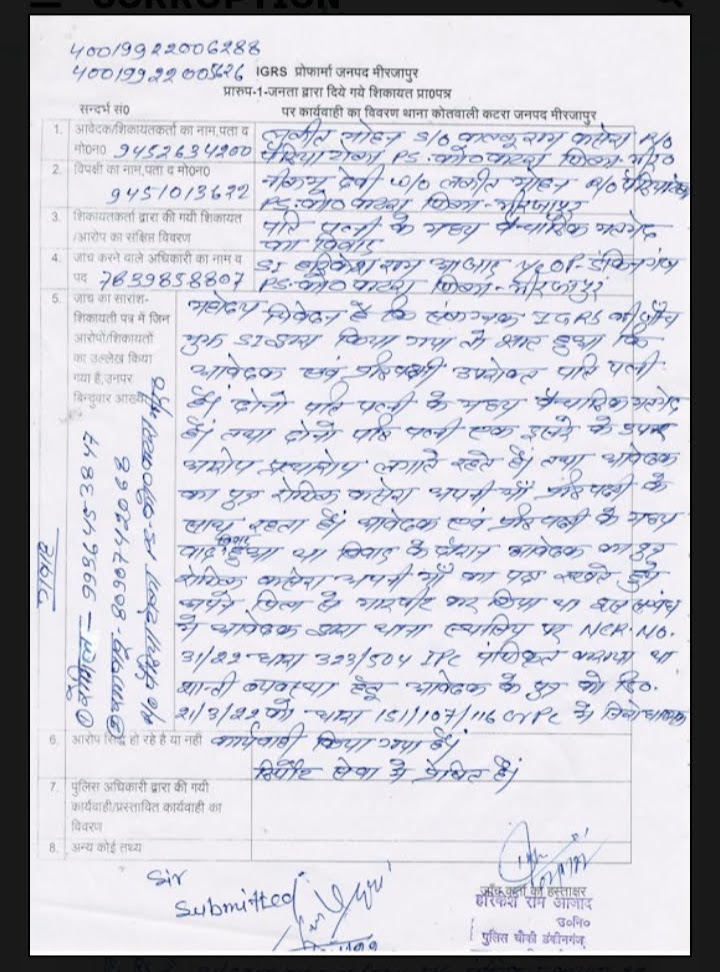 CORRUPTION
40019922006288
40019922005626 IGRS प्रोफार्मा जनपद मीरजापुर
प्रारुप-1-जनता द्वारा दिये गये शिकायत प्रा0पत्र
सन्दर्भ सं0 पर कार्यवाही का विवरण थाना कोतवाली कटरा जनपद मीरजापुर
1. आवेदक/शिकायतकर्ता का नाम,पता व ललित मोहन S/O कल्लू राम कसेरा R/O
मो0न0 9452634200 PS. को0 कटरा जिला-
2. विपक्षी का नाम,पता व मो0न0 देवी W/O ललित मोहन R/O
9451013622 PS. को0 कटरा जिला-मीरजापुर
3. शिकायतकर्ता द्वारा की गयी शिकायत पति पत्नी के मध्य वैचारिक मतभेद
/आरोप का संक्षिप्त विवरण का विवाद
4. जांच करने वाले अधिकारी का नाम व SI हरिकेश राम आजाद
पद 7839858807 PS. को0 कटरा जिला-मीरजापुर
5. जांच का सारांश- महोदय निवेदन है कि संलग्नक IGRS की जाँच
शिकायती पत्र में जिन मुझ SI द्वारा किया गया तो ज्ञात हुआ कि
आरोपों/शिकायतों आवेदक एवं उपरोक्त पति पत्नी
का उल्लेख किया
गया है,उनपर हैं। दोनो पति पत्नी के मध्य वैचारिक मतभेद
बिन्दुवार आख्या है। तथा दोनो पति पत्नी एक दूसरे के उपर
आरोप प्रत्यारोप लगाते रहते हैं। तथा आवेदक
का पुत्र कसेरा अपनी माँ के
साथ रहता है। आवेदक एवं के मध्य
विवाद हुआ था विवाद के दौरान आवेदक का पुत्र
कसेरा अपनी माँ का पक्ष रखते हुए
अपने पिता से मारपीट कर लिया था इस संबंध
मे आवेदक द्वारा थाना स्थानीय पर NCR.NO.
31/22 धारा 323/504 IPC पंजीकृत कराया था
शान्ती व्यवस्था हेतु आवेदक के पुत्र को दि0.
21/3/22 को धारा 151/107/116 CrPC मे
गवाह
① 9936453847
② 8090742068
6. आरोप सिद्ध हो रहे है या नही कार्यवाही किया गया है।
रिपोर्ट सेवा मे प्रेषित है।
7. पुलिस अधिकारी द्वारा की गयी
कार्यवाही/प्रस्तावित कार्यवाही का
विवरण
8. अन्य कोई तथ्य
Sir
Submitted
जाँच कर्ता का हस्ताक्षर
हरिकेश राम आजाद
उ०नि०
पुलिस चौकी डंकीनगंज